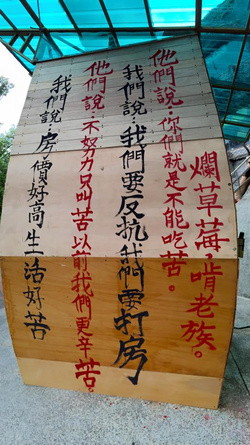 爛草莓，啃老族。
他們說：你們就是不能吃苦。
我們說：我們要反抗我們要打房
他們說：不努力只叫苦以前我們更辛苦。
我們說：房價好高生活好苦